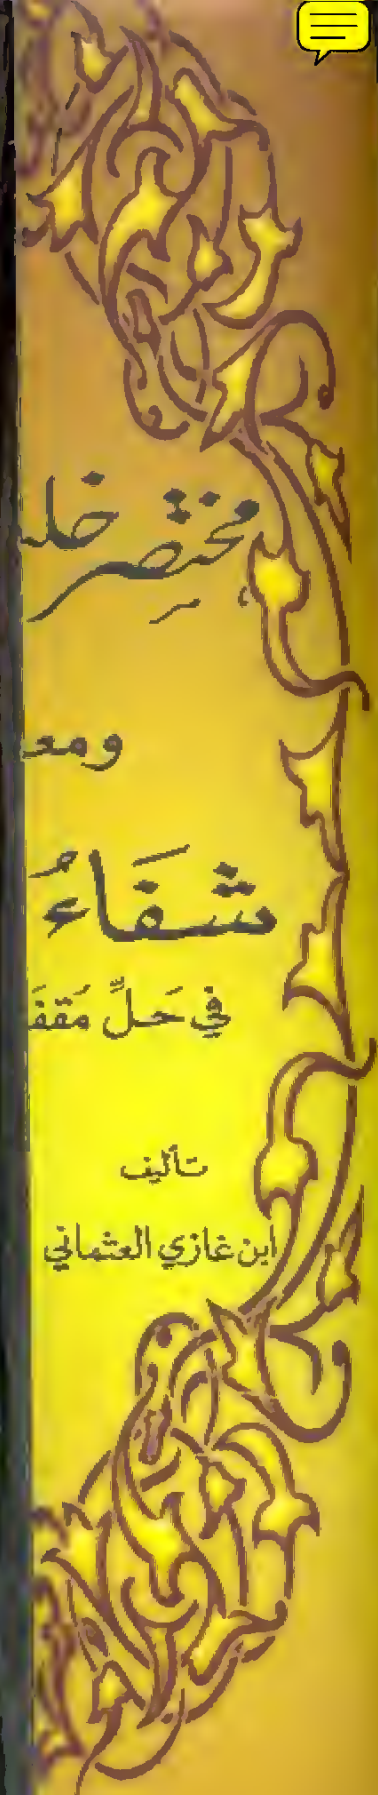 مختصر خلـ
ومعـ
شفَاءُ
في حَلِّ مَقفَـ
تأليف
ابن غازي العثماني